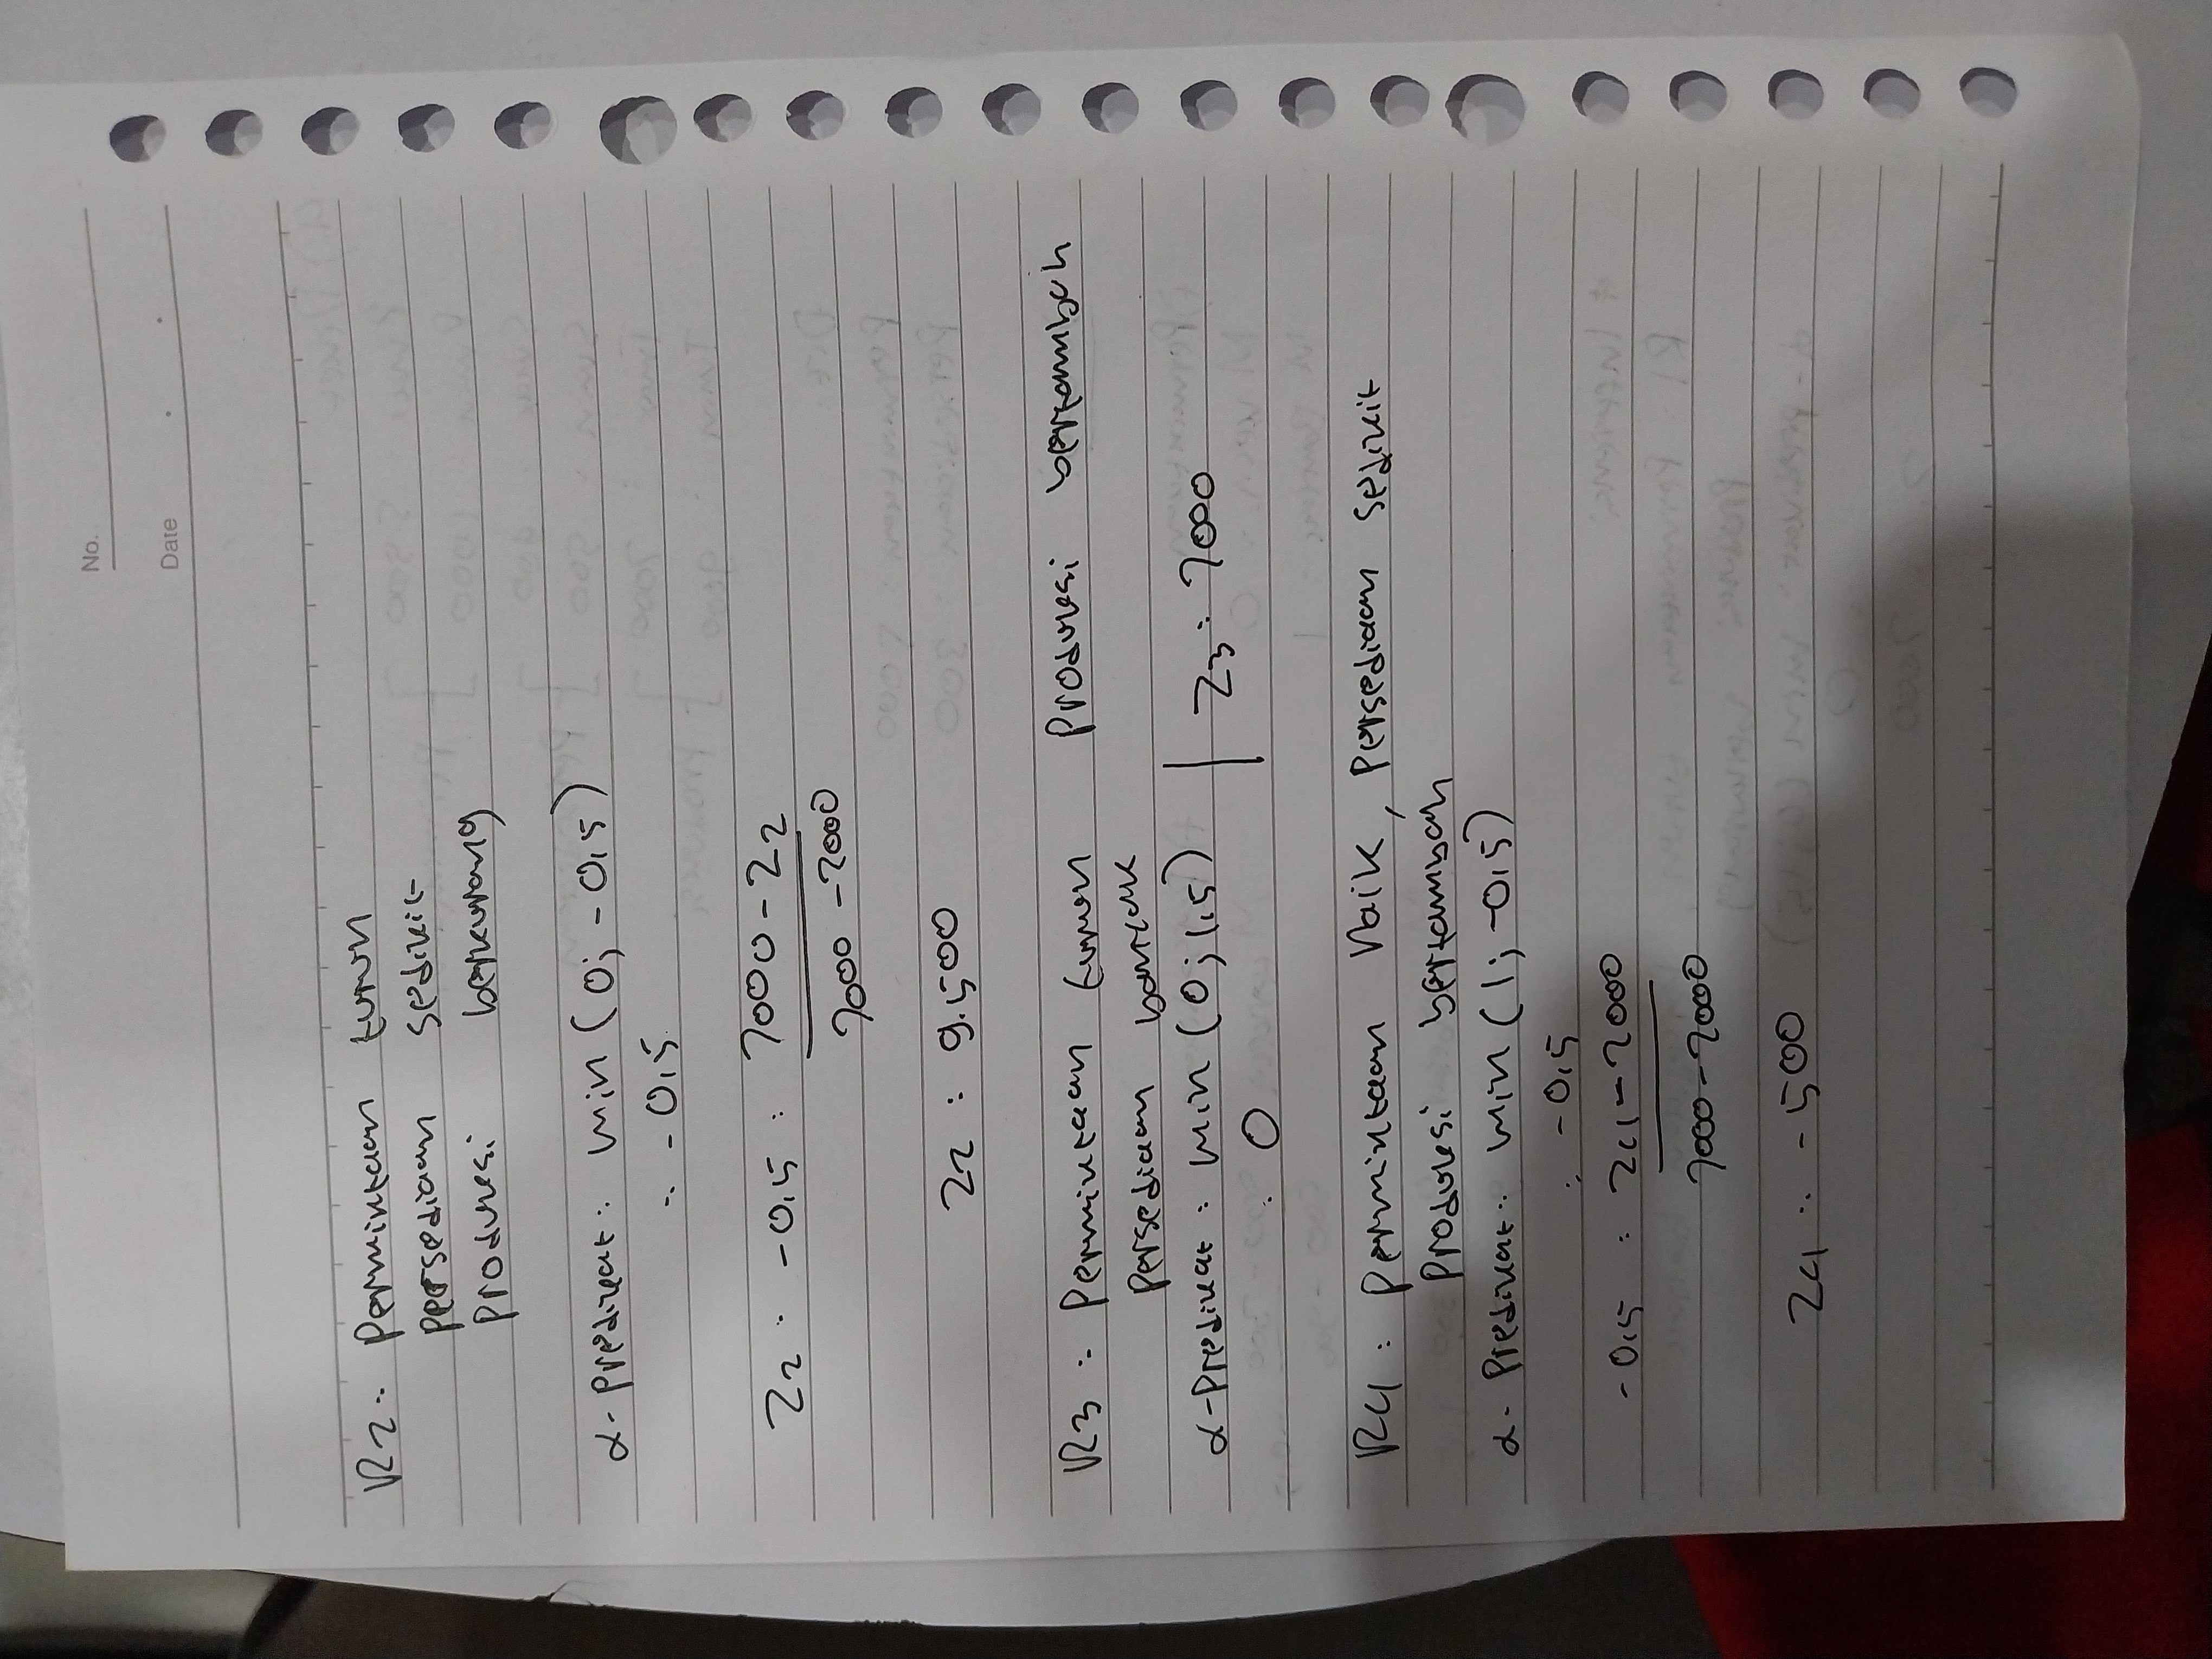 No.
Date
R2: Permintaan turun
persediaan sedikit
Produksi berkurang
α-Predikat: min (0; -0,5)
: -0,5
Z2 : -0,5 : 7000 - Z2
7000 - 2000
Z2 : 9.500
R3 : Permintaan turun Produksi bertambah
Persediaan banyak
α-Predikat : min (0; 1,5) | Z3 : 7000
: 0
R4 : Permintaan Naik, Persediaan sedikit
Produksi bertambah
α- Predikat : min (1; -0,5)
: -0,5
-0,5 : Z4 - 2000
7000 - 2000
Z4 : -500